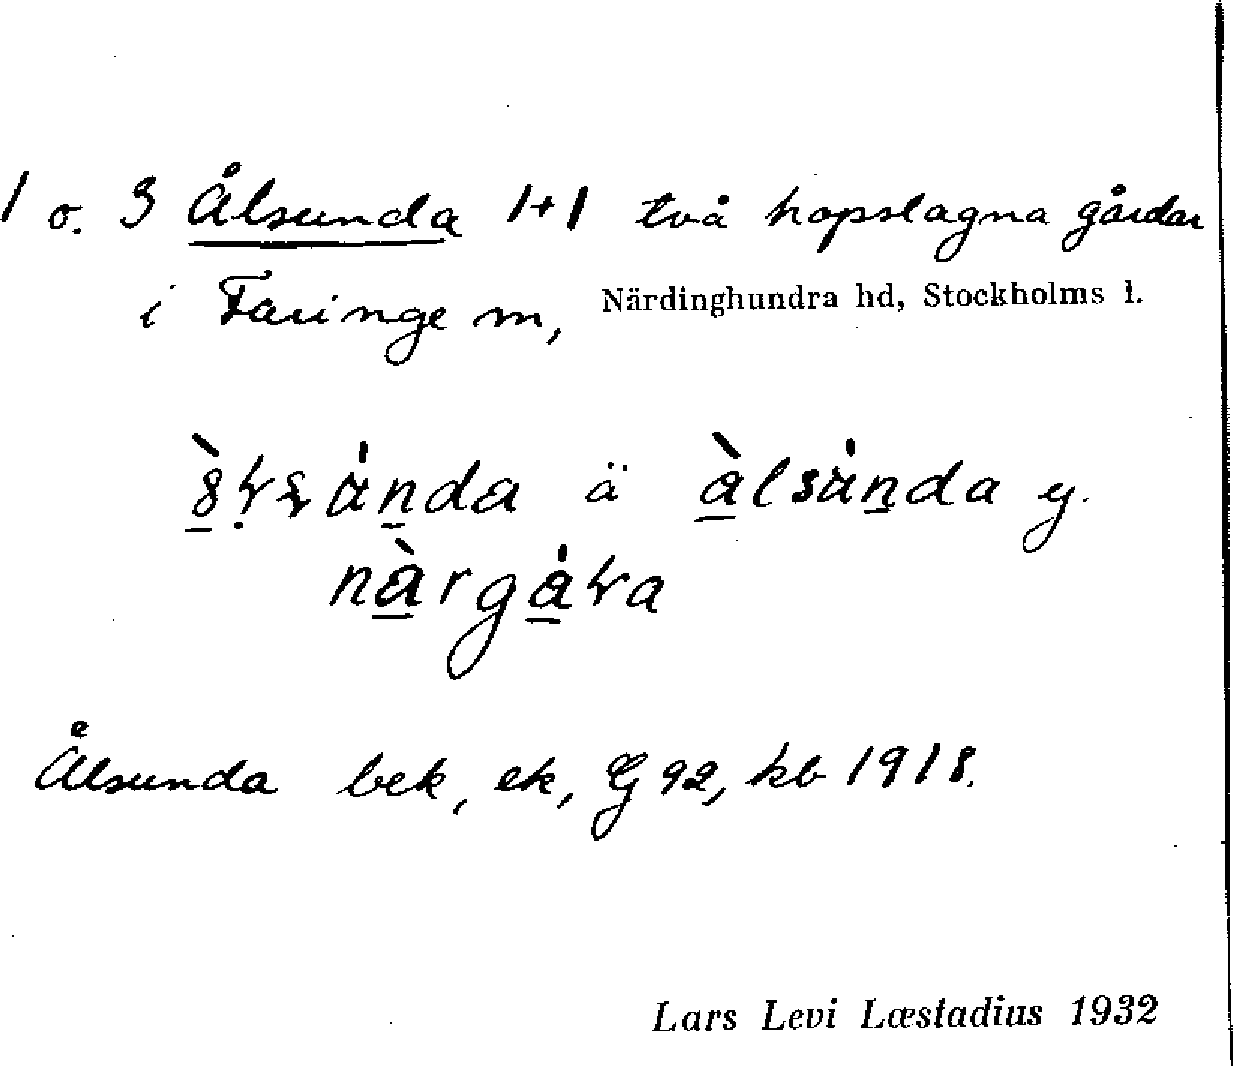 1 o. 3 Ålsunda 1+1 två hopslagna gårdar
i Faringe sn, Närdinghundra hd, Stockholms l.
ä àlsùnda y.
Ålsunda bek, ek, G 92, kb 1918.
Lars Levi Læstadius 1932